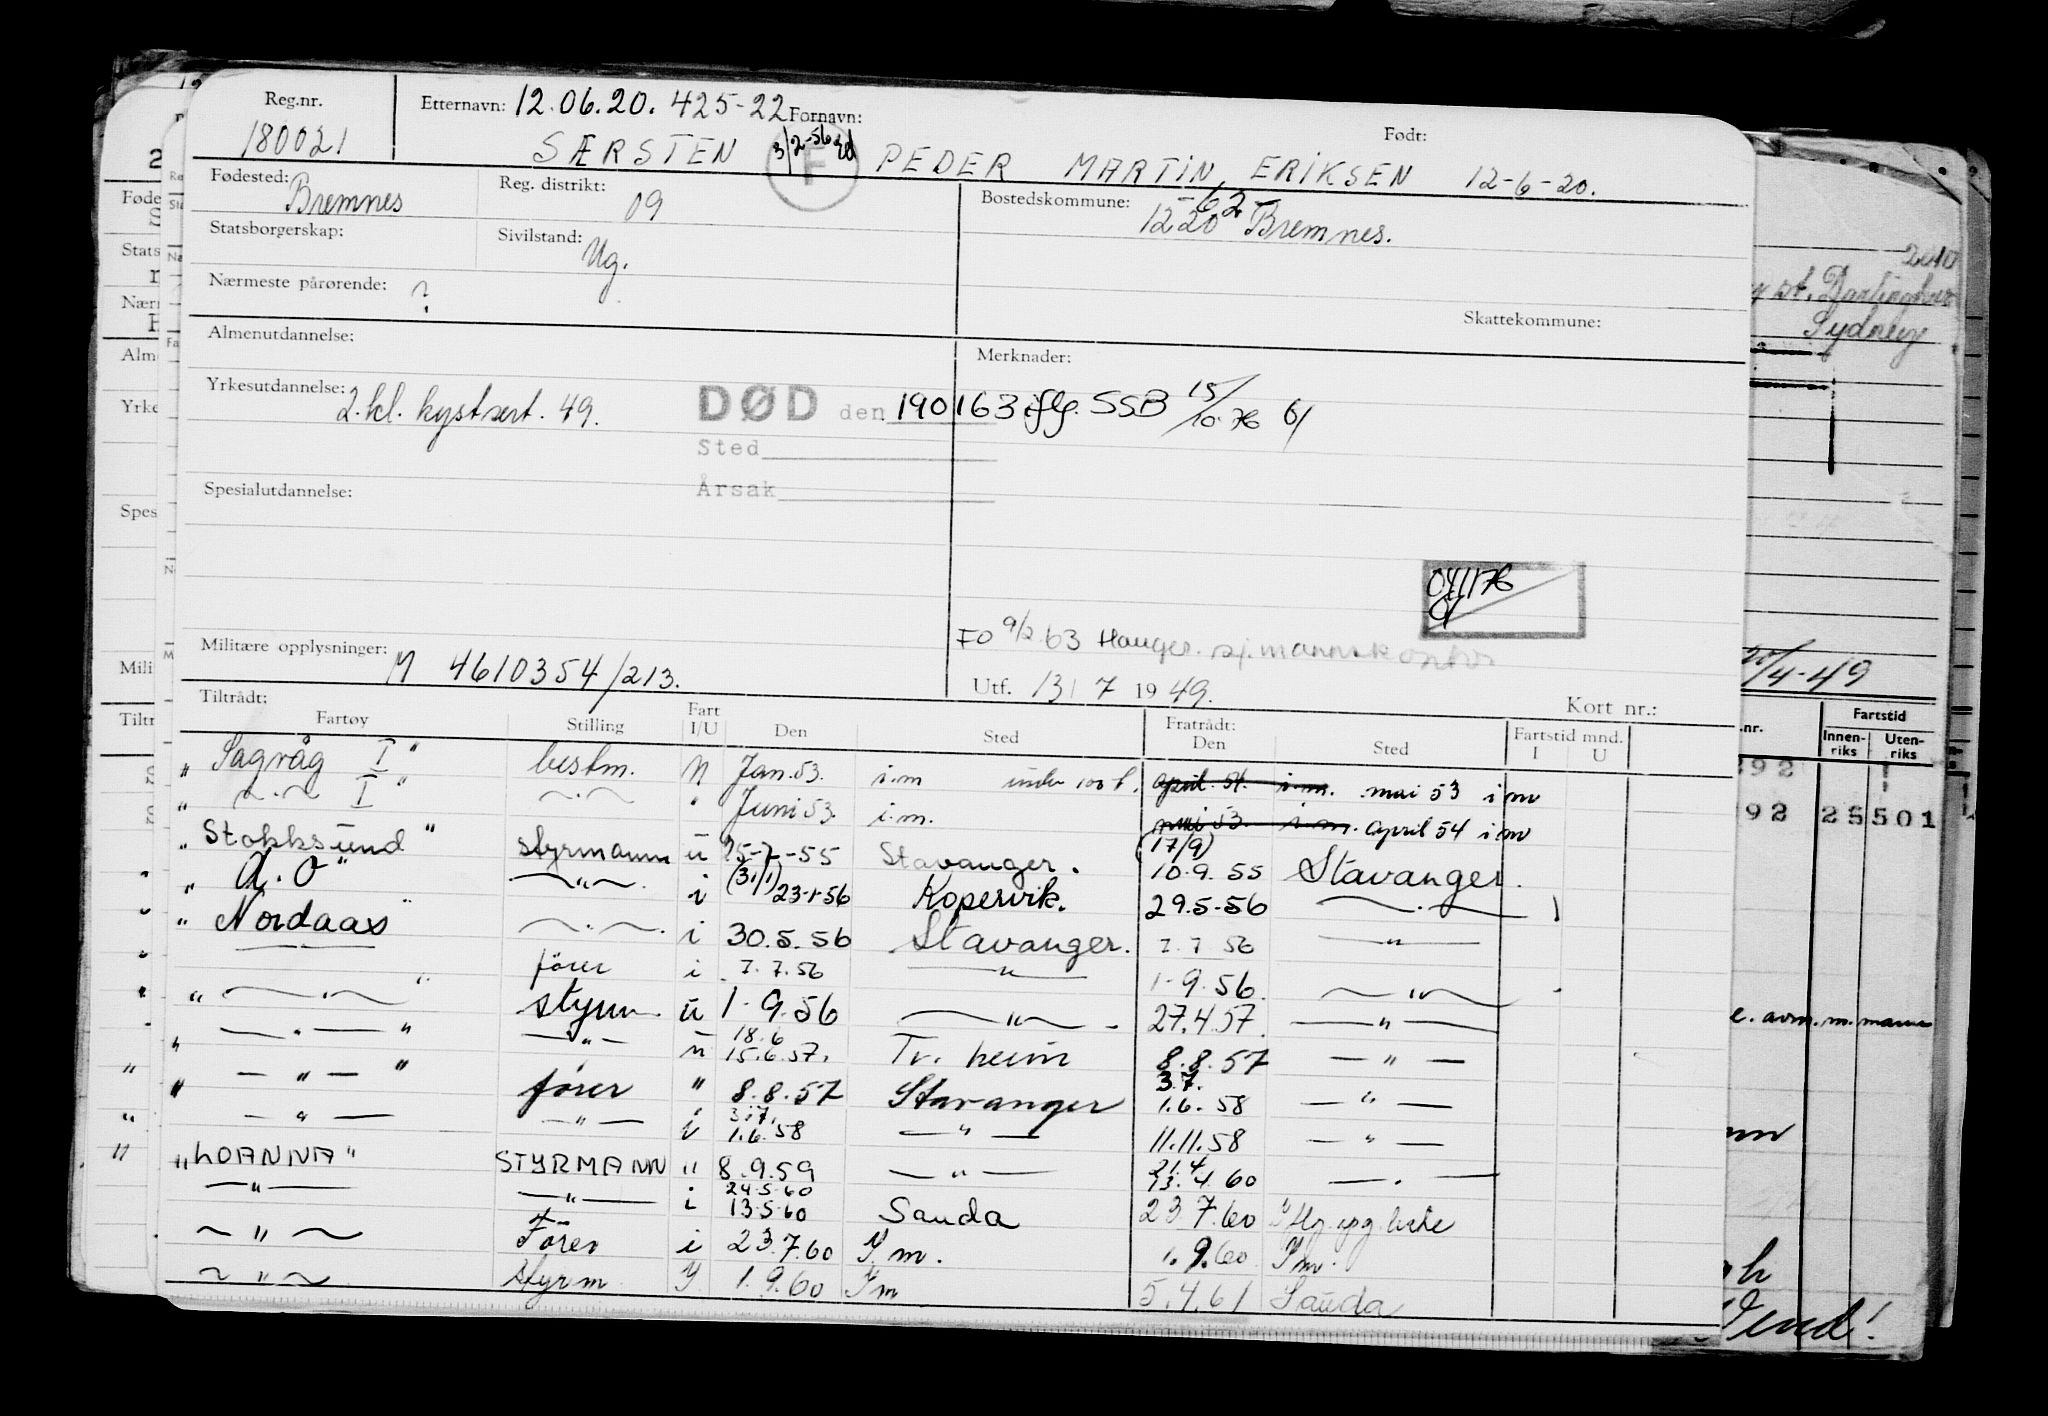 Reg.nr. 180021
Etternavn: 12.06.20. 425-22 Fornavn: Født:
SÆRSTEN F 3/2-56 PEDER MARTIN ERIKSEN 12-6-20.
Fødested: Bremnes Reg. distrikt: 09 Bostedskommune: -62- 1220 Bremnes.
Statsborgerskap: Sivilstand: Ug.
Nærmeste pårørende: ?
Skattekommune:
Almenutdannelse: Merknader:
Yrkesutdannelse: 2.kl. kystsert. 49. DØD den 190163 iflg. SSB 15/10-76
Sted
Årsak
Spesialutdannelse:
041176
FO 9/2 63 Hauges. sj.mannskontor
Militære opplysninger: M 4610354/213. Utf. 13/7 1949.
Tiltrådt: Kort nr.:
Fartøy Stilling Fart I/U Den Sted Fratrådt: Den Sted Fartstid mnd. I U
"Sagvåg I" bestm. N Jan.53. i.m under 100 t. april. 54. i.m. mai 53 im
" ~.~ I" ~.~ " Juni 53. i.m. mai 53. i.m. april 54 im
"Stokksund" styrmann u 25-7-55 Stavanger. (17/9) 10.9.55 Stavanger.
"A.O" ~"~. i (31/1) 23-1-56 Kopervik. 29.5-56 ~.~
"Nordaas" ~.~. i 30.5.56 Stavanger. 7.7 56 —"—
fører i 7.7.56 —"— 1-9.56 ~"~
" ~.~ " styrm. u 1-9.56 ~"~ 27.4.57. —"—
—"— " —"— u 18.6 15.6.57. Tr. heim 8.8.57 —"—
" —"— " fører " 8.8.57 Stavanger 3.7. 1.6.58 —"—
" —"— —"— i 3.7. 1.6.58 —"— 11.11.58 —"—
"LOANNA" STYRMANN " 8.9.59 —"— 21.4 13.4.60 —.—
—"— —"— i 24.5.60 13.5.60 Sauda 23 7.60 Iflg. opg. liste
~ " ~ Fører i 23.7.60 Im. 1.9.60 Im.
~ " ~ styrm. I 1.9.60 Im 5.4.61 Sauda
2010
Darlinghurst
Sydney
20/4-49
nr. Fartstid
Innen-riks Uten-riks
392
392 25 501
e. avm. m. mann
Vend!
Føde
Stats
Nærr
Alm
Yrke
Spes
Mili
Tiltr